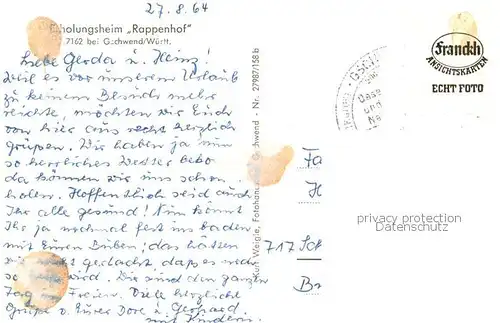 27.8.64
Erholungsheim „Rappenhof"
7162 bei Gschwend/Württ.
Liebe Gerda u. Heinz!
Weil es vor unserem Urlaub
zu keinem Besuch mehr
reichte, möchten wir Euch
von hier aus recht herzlich
grüßen. Wir haben ja nun
so herrliches Wetter
da können wir uns schon
holen. Hoffentlich seid auch
Ihr alle gesund! Nun könnt
Ihr ja nochmal fest ins baden
mit Euren Buben; das hätten
wir nicht gedacht daß es noch
so wird. Wir sind den ganzen
Tag im Freien. Viele herzliche
Grüße v. Eurer Dore u. Gerhard
mit Kindern.
Kurt Weigle, Fotohaus, Gschwend - Nr. 27987/158 b
GSC
Franckh
ANSICHTSKARTEN
ECHT FOTO
Fa
H
717 Sch
Br
privacy protection
Datenschutz